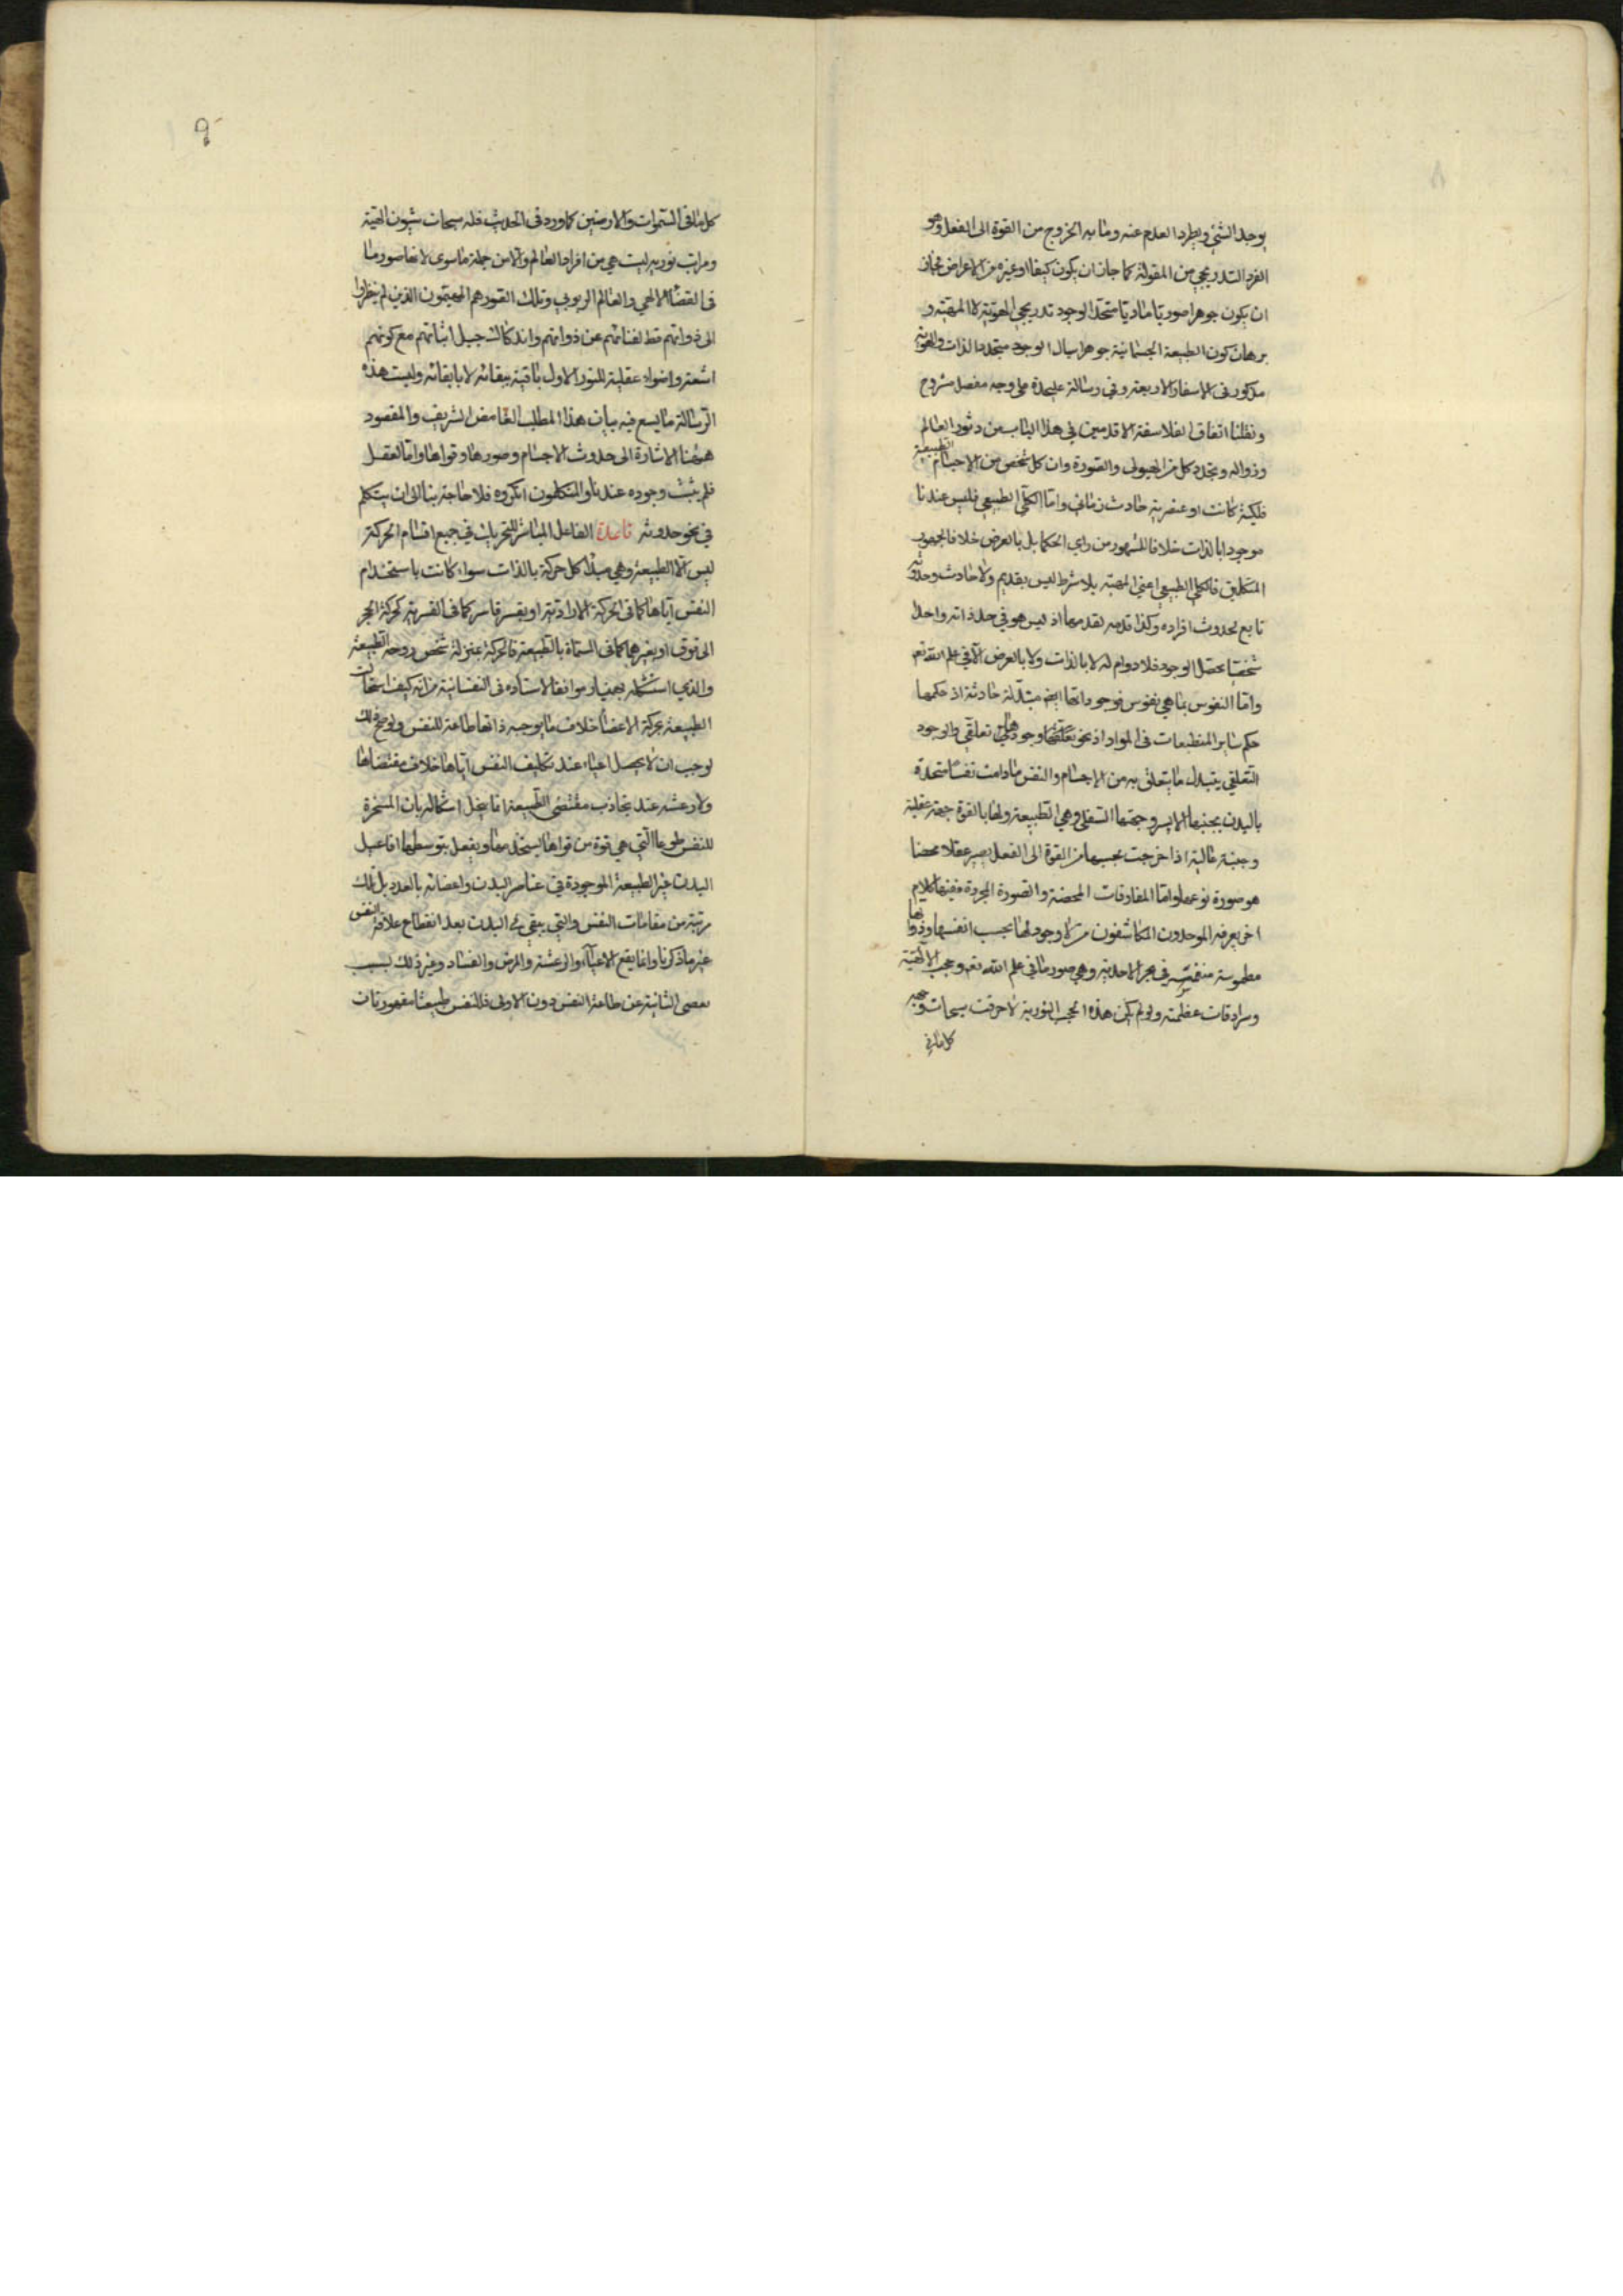 يوجد الشئ ويطرد العدم عنه وما به الخروج من القوة الى الفعل وهو
الفرد التدريجي من المقولة كما جاز ان يكون كيفا او غيره من الاعراض فجاز
ان يكون جوهرا صوريا ماديا متجدد الوجود تدريجي الهوية لا المهية و
برهان كون الطبيعة الجسمانية جوهرا سيال الوجود متجدد الذات والهوية
مذكور في الاسفار الاربعة وفي رسالة عليحدة على وجه مفصل مشروح
ونقلنا اتفاق الفلاسفة الاقدمين في هذا الباب من دثور العالم
وزواله وتجدد كل من الهيولى والصورة وان كل شخص من الاجسام الطبيعية
فلكية كانت او عنصرية حادث زماني واما الكلي الطبيعي فليس عندنا
موجودا بالذات خلافا للمشهور من راى الحكما بل بالعرض خلافا لجمهور
المتكلمين فالكلي الطبيعي اعني المهية بلا شرط ليس بقديم ولا حادث وحدوثه
تابع لحدوث افراده وكذا قدمه بقدمها اذ ليس هو في حد ذاته واحدا
شخصيا محصل الوجود فلا دوام له لا بالذات ولا بالعرض الا في علم الله تعم
واما النفوس بما هي نفوس فوجوداتها ايضا متبدلة حادثة اذ حكمها
حكم ساير المنطبعات في المواد اذ نحو وجودها تعلقي والوجود
التعلقي يتبدل ما يتعلق به من الاجسام والنفس ما دامت نفسا متحدة
بالبدن بجنبها الايسر وجهتها السفلى وهي الطبيعة ولها بالقوة جهة عقلية
وجنبة عالية اذا خرجت بحسبها من القوة الى الفعل يصير عقلا محضا
هو صورة نوعها واما المفارقات المحضة والصورة المجردة ففيها كلام
اخر يعرفه الموحدون المكاشفون من لا وجود لها بحسب انفسها وذواتها
مطموسة منغمسة في بحر الاحدية وهي صور ما في علم الله تعم وحجب الالهية
وسرادقات عظمته ولو لم يكن هذه الحجب النورية لاحرقت سبحات وجهه
كل ما في
٩
كل ما في السموات والارضين كما ورد في الحديث فله سبحات شيون الهية
ومراتب نورية ليست هي من افراد العالم ولا من جملة ما سوى لانها صور ما
في القضا الالهي والعالم الربوبي وتلك الصور هم المهيمون الذين لم ينظروا
الى ذواتهم قط لفنائهم عن ذواتهم واندكاك جبل انياتهم مع كونهم
اشعة واضواء عقلية للنور الاول باقية ببقائه لا بابقائه وليست هذه
الرسالة ما يسع فيه بيان هذا المطلب الغامض الشريف والمقصود
ههنا الاشارة الى حدوث الاجسام وصورها وقواها واما العقل
فلم يثبت وجوده عندنا والمتكلمون انكروه فلا حاجة بنا الى ان يتكلم
في نحو حدوثه فائدة الفاعل المباشر للتحريك في جميع اقسام الحركة
ليس الا الطبيعة وهي مبدا كل حركة بالذات سواء كانت باستخدام
النفس اياها كما في الحركة الارادية او بقسر قاسر كما في القسرية كحركة الحجر
الى فوق او بغيرهما كما في المسماة بالطبيعة فالحركة بمنزلة شخص روحه الطبيعة
والذي استشكله بهمنيار موافقا لاستاده في النفسانية من انه كيف استحالت
الطبيعة محركة الاعضا خلاف ما يوجبه ذاتها طاعة للنفس ولو صح ذلك
لوجب ان لا يحصل اعياء عند تكليف النفس اياها خلاف مقتضاها
ولا رعشة عند تجاذب مقتضى الطبيعة انما ينحل اشكاله بان المسخرة
للنفس طوعا التي هي قوة من قواها يستخدمها ويفعل بتوسطها افاعيل
البدن غير الطبيعة الموجودة في عناصر البدن واعضائه بالعدد بل تلك
مرتبة من مقامات النفس والتي يبقي في البدن بعد انقطاع علاقة النفس
غير ما ذكرنا وانما يقع الاعياء والرعشة والمرض والفساد وغير ذلك بسبب
تعصى الثانية عن طاعة النفس دون الاولى فللنفس طبيعتا مقهورتان